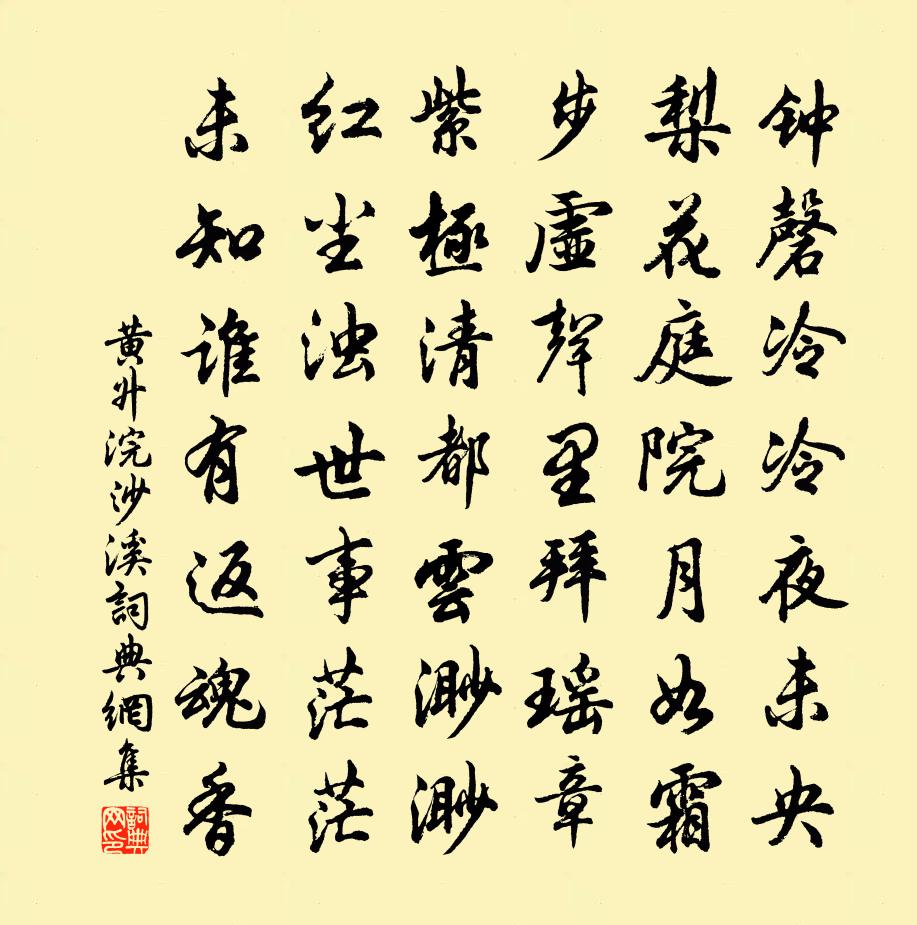 钟磬冷冷夜未央
梨花庭院月如霜
步虚聲里拜瑶章
紫極清都雲渺渺
红尘浊世事茫茫
未知谁有返魂香
黄升浣沙溪詞典網集
詞典网印